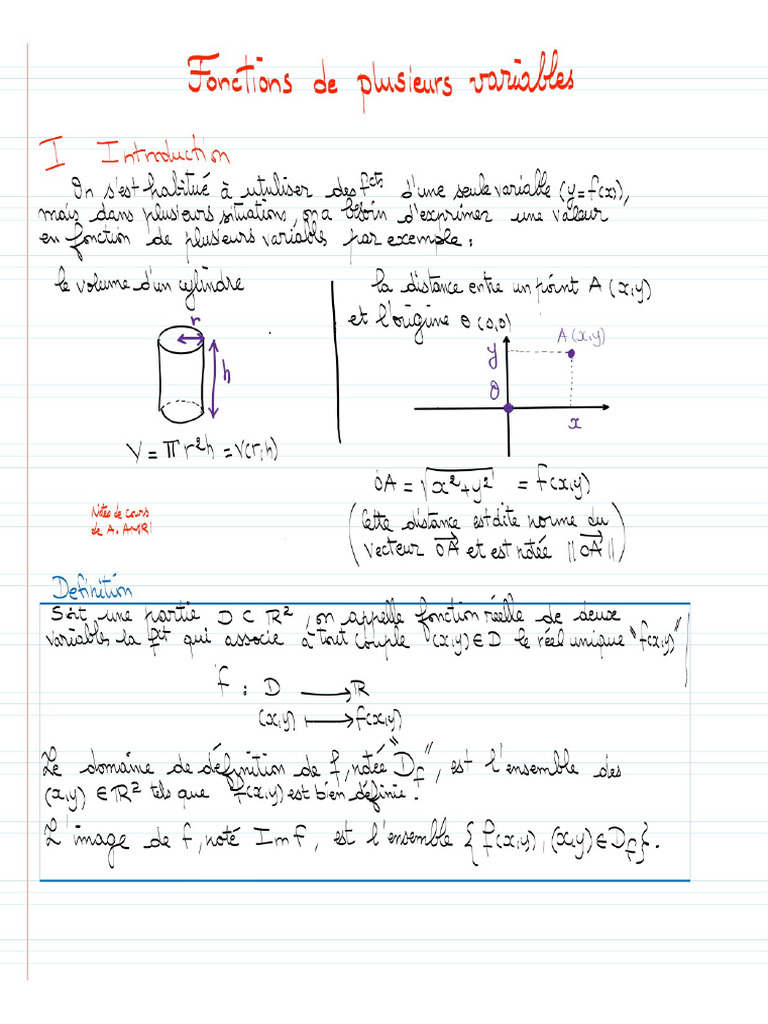 Fonctions de plusieurs variables
I Introduction
On s'est habitué à utuliser des fcts d'une seule variable (y=f(x)),
mais dans plusieurs situations, on a besoin d'exprimer une valeur
en fonction de plusieurs variables par exemple :
le volume d'un cylindre
r
h
V = πr²h = V(r,h)
la distance entre un point A (x,y)
et l'origine O (0,0)
A(x,y)
y
O
x
OA = √(x²+y²) = f(x,y)
(Cette distance est dite norme du
vecteur →OA et est notée ||→OA||)
Notes de cours
de A. AMRI
Definition
Soit une partie D ⊂ ℝ², on appelle fonction réelle de deux
variables la fct qui associe à tout couple (x,y) ∈ D le réel unique "f(x,y)"
f : D ⟶ ℝ
(x,y) ⟼ f(x,y)
Le domaine de définition de f, notée "Df", est l'ensemble des
(x,y) ∈ ℝ² tels que f(x,y) est bien définie.
L'image de f, noté Imf, est l'ensemble {f(x,y), (x,y) ∈ Df}.